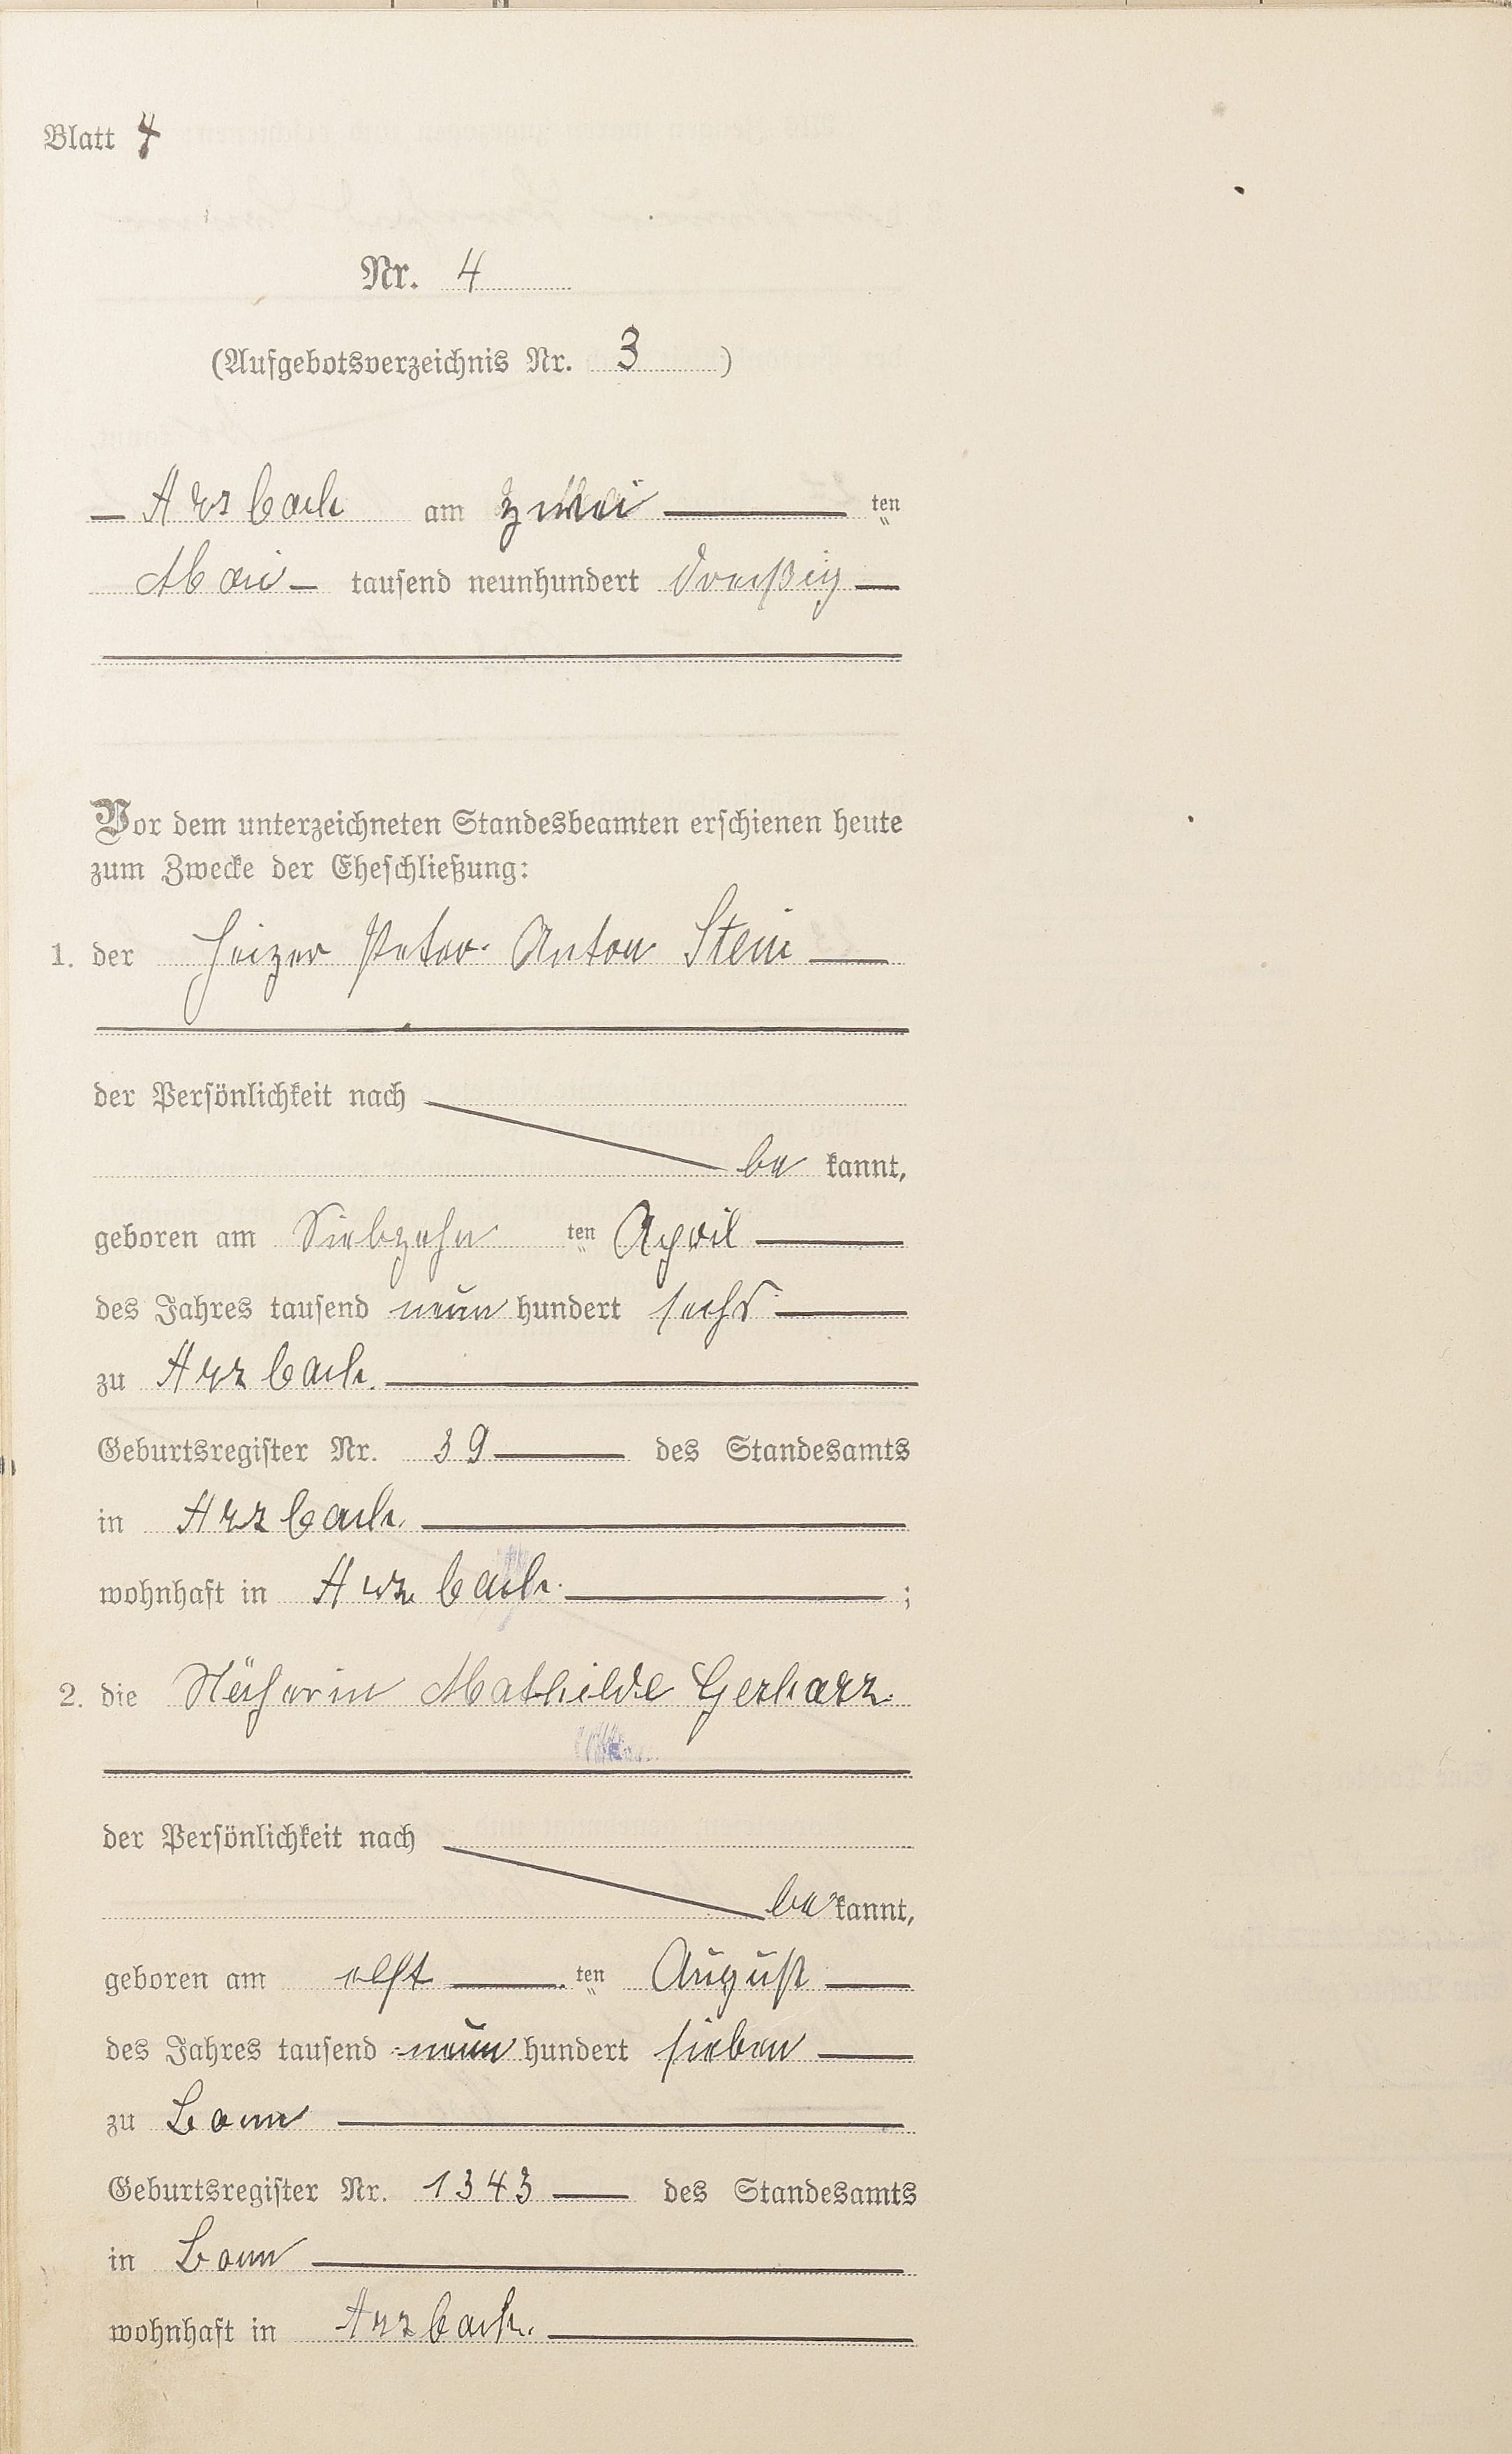 Blatt 4
Nr. 4
(Aufgebotsverzeichnis Nr. 3)
Arzbach am zwei ten
Mai tausend neunhundert dreißig
Vor dem unterzeichneten Standesbeamten erschienen heute
zum Zwecke der Eheschließung:
1. der Heizer Peter Anton Stein
der Persönlichkeit nach
be kannt,
geboren am Siebzehn ten April
des Jahres tausend neun hundert sechs
zu Arzbach
Geburtsregister Nr. 39 des Standesamts
in Arzbach
wohnhaft in Arzbach ;
2. die Näherin Mathilde Gerharz
der Persönlichkeit nach
be kannt,
geboren am elft ten August
des Jahres tausend neun hundert sieben
zu Bonn
Geburtsregister Nr. 1343 des Standesamts
in Bonn
wohnhaft in Arzbach